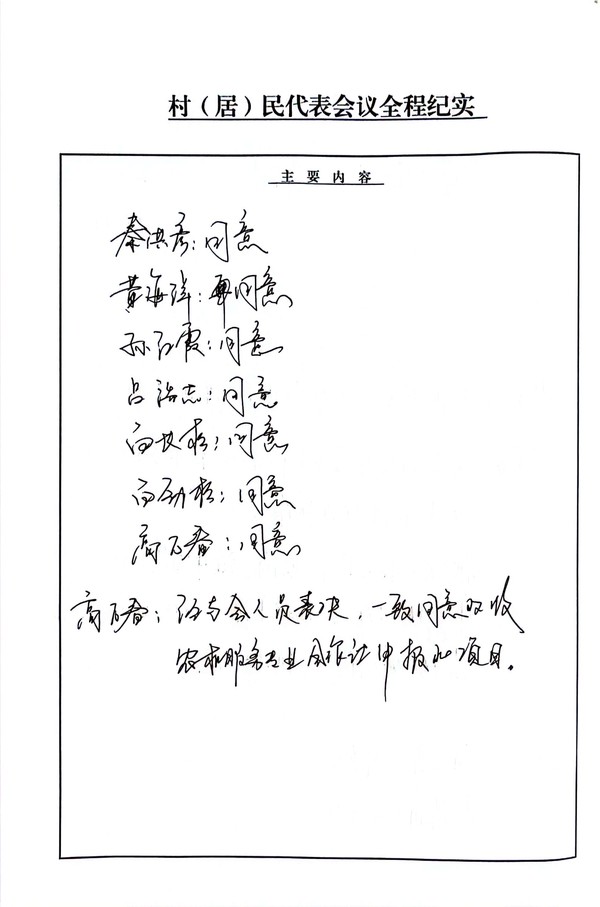 村（居）民代表会议全程纪实
主要内容
秦洪彦：同意
黄海洋：同意
孙红霞：同意
吕浩志：同意
高长松：同意
高劲松：同意
高万春：同意
高万春：经与会人员表决，一致同意双收
农机服务专业合作社申报的项目。